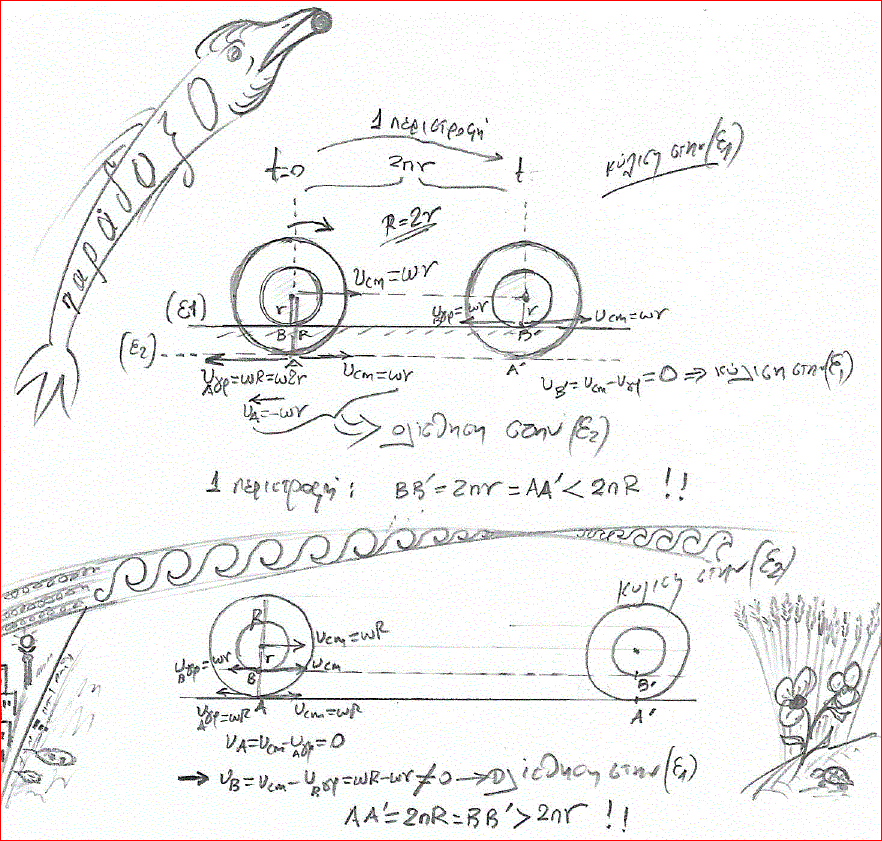 παράδοξο
1 περιστροφή
t=0
2πr
t
κύλιση στην (ε1)
R=2r
υcm=ωr
(ε1)
r
r
Bυγρ=ωr
υcm=ωr
B
R
B'
(ε2)
A
A'
Aυγρ=ωR=ω2r
υcm=ωr
υB'=υcm-υγρ=0 ⇒ κύλιση στην (ε1)
υA=-ωr
ολίσθηση στην (ε2)
1 περιστροφή: BB'=2πr=AA'<2πR !!
κύλιση στην (ε2)
R
υcm=ωR
r
Bυγρ=ωr
υcm
B
B'
Aυγρ=ωR
A
υcm=ωR
A'
υA=υcm-Aυγρ=0
→ υB=υcm-Bυγρ=ωR-ωr≠0 → ολίσθηση στην (ε1)
AA'=2πR=BB'>2πr !!